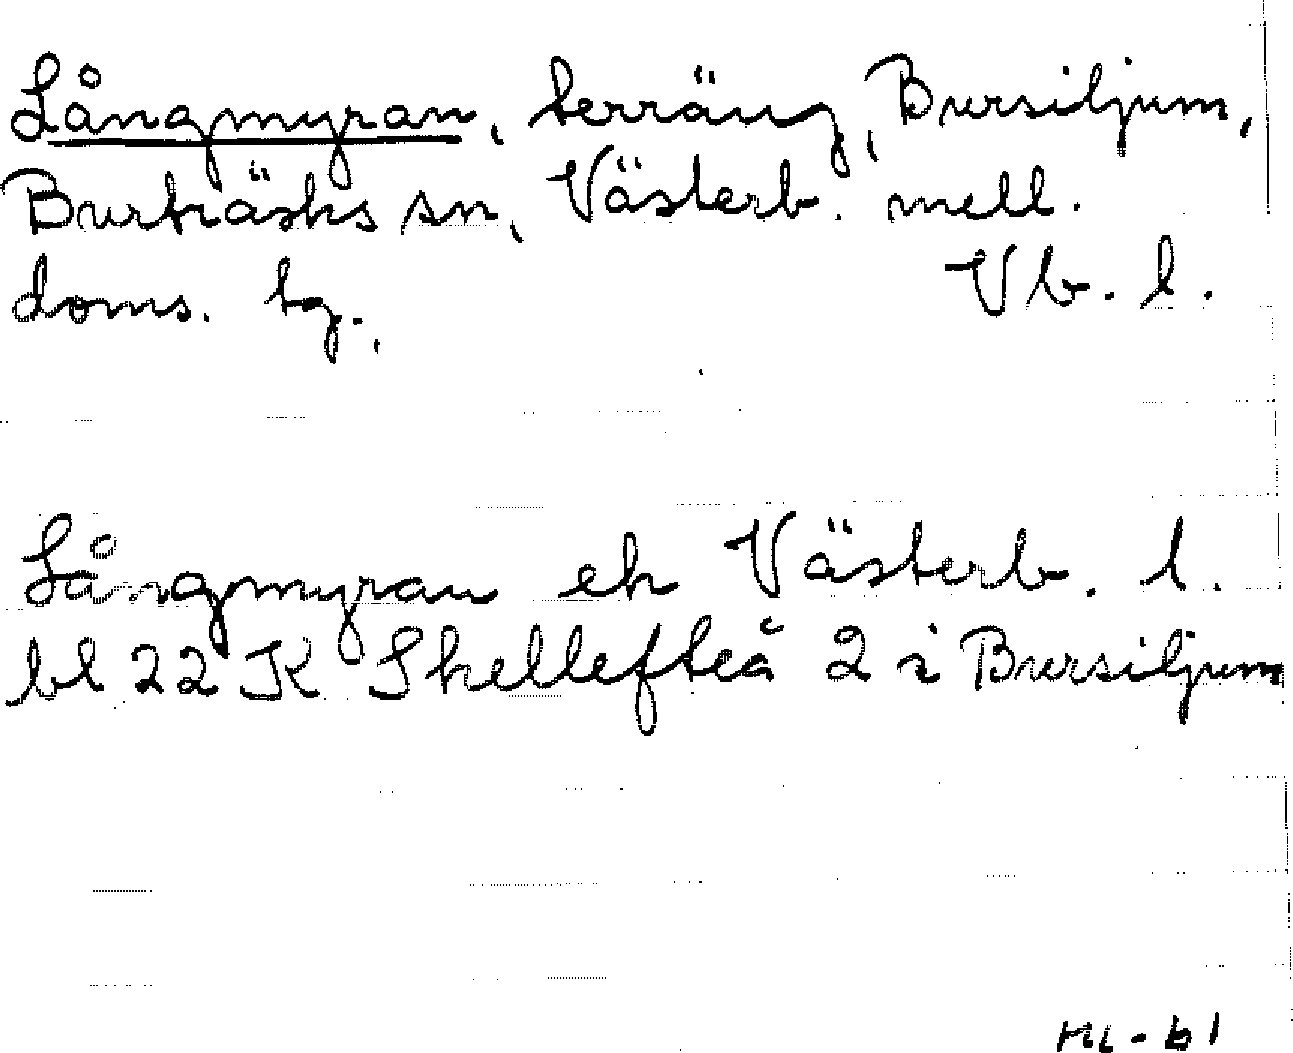 Långmyran, terräng, Bursiljum,
Burträsks sn, Västerb. mell.
doms. tg., Vb. l.
Långmyran ek Västerb. l.
bl 22 K Skellefteå 2 i Bursiljum